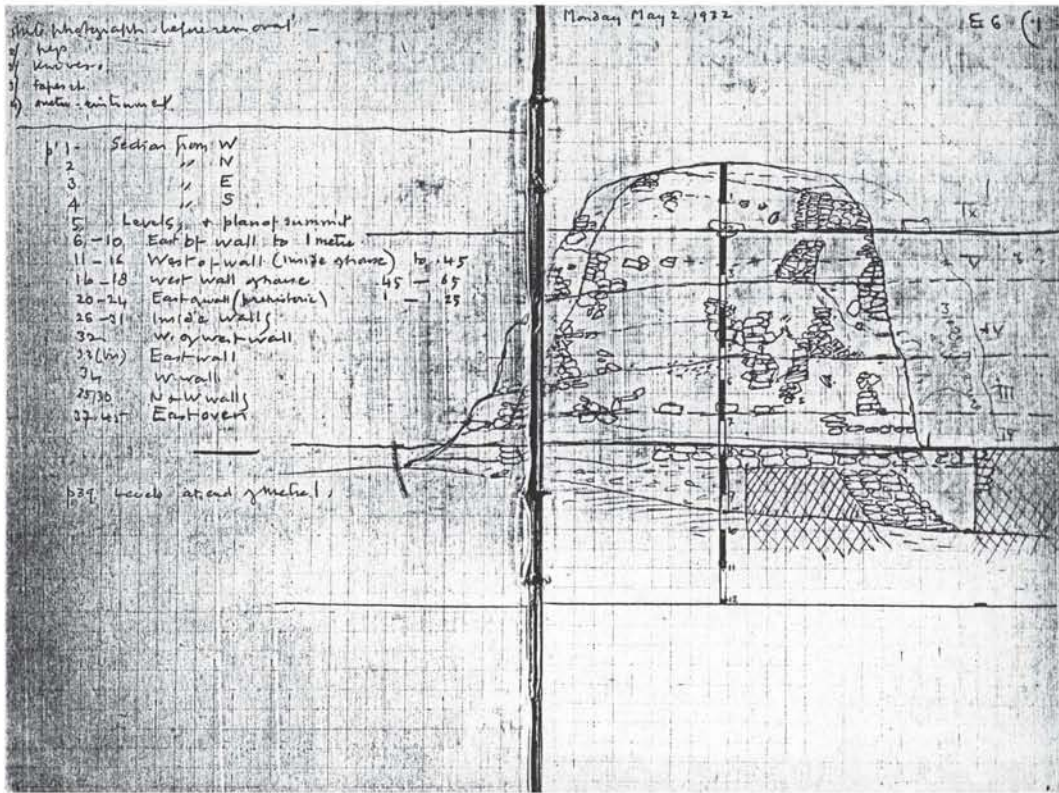 photograph before removal -
2) pegs
3) knives.
p. 1 - Section from W
2 " N
3 " E
4 " S
5 Levels, + plan of summit
6-10 East of wall to 1 metre
11-16 West of wall (inside house) to .45
16-18 West wall house .45 - .65
20-24 East of wall (prehistoric) 1 - 1.25
26-31 Inside walls
32 W. of west wall
33 (bis) East wall
34 W. wall
35/36 N & W walls
37-45 East oven
p39 Levels at end of metre 1.
Monday May 2. 1932
E6 (1
IX
V
IV
III
12